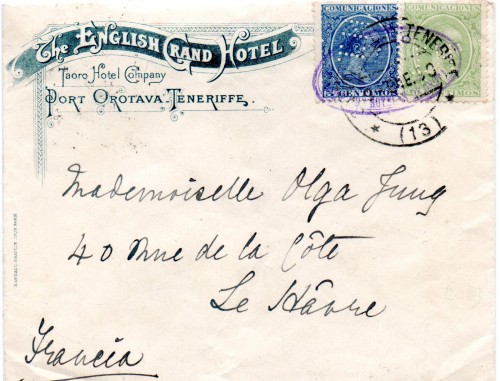 The English Grand Hotel
Taoro Hotel Company
Port Orotava. Teneriffe.
COMUNICACIONES COMUNICACIONES
TENERIFE
(13)
Mademoiselle Olga Jung
40 Rue de la Côte
Le Hâvre
Francia